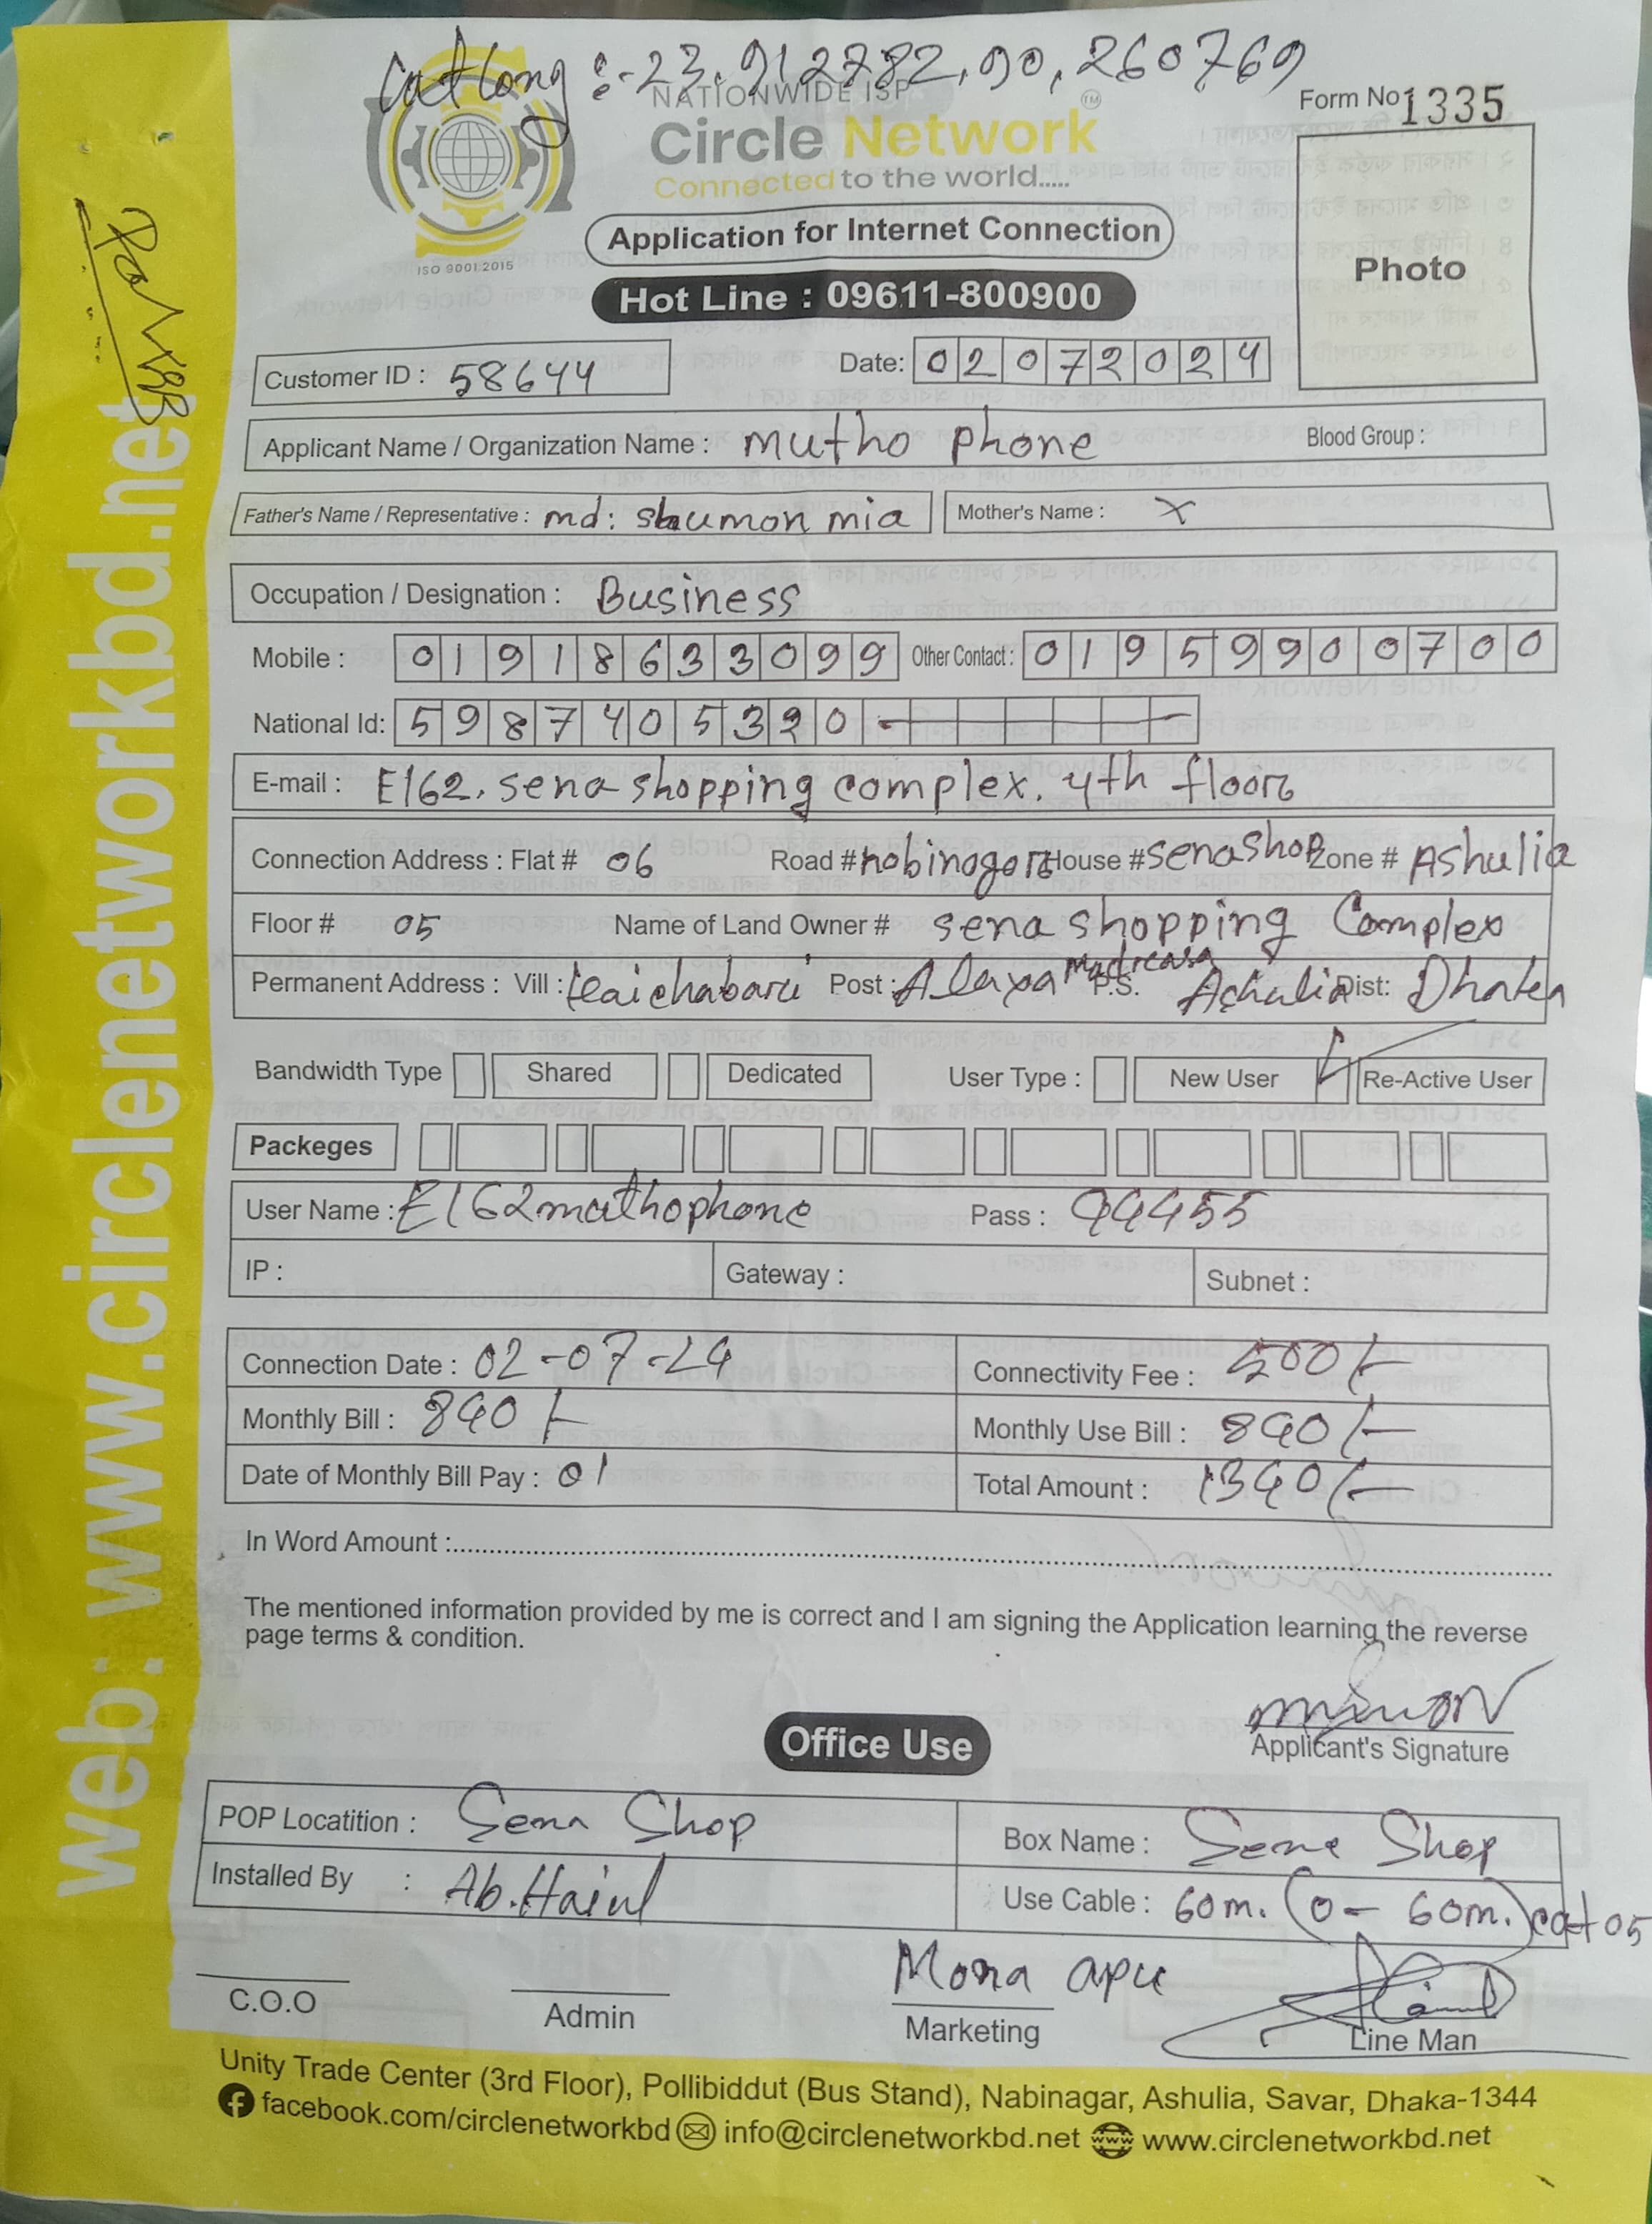 Latlong :- 23.912782, 90.260769
NATIONWIDE ISP
Circle Network TM
Connected to the world.....
ISO 9001:2015
Form No 1335
Photo
Application for Internet Connection
Hot Line : 09611-800900
Customer ID : 58644
Date: 02072024
Applicant Name / Organization Name : mutho phone Blood Group :
Father's Name / Representative : md: shumon mia Mother's Name : X
Occupation / Designation : Business
Mobile : 01918633099 Other Contact : 01959900700
National Id: 5987405320
E-mail : E162, sena shopping complex. 4th floor
Connection Address : Flat # 06 Road # nobinogor House # senashop Zone # Ashulia
Floor # 05 Name of Land Owner # sena shopping Complex
Permanent Address : Vill : kaichabari Post : Madrcasa P.S. Ashulia Dist: Dhaka
Bandwidth Type Shared Dedicated User Type : New User Re-Active User
Packeges
User Name : E162muthophone Pass : 44455
IP : Gateway : Subnet :
Connection Date : 02-07-24 Connectivity Fee : 500/-
Monthly Bill : 840/- Monthly Use Bill : 840/-
Date of Monthly Bill Pay : 01 Total Amount : 1340/-
In Word Amount :
The mentioned information provided by me is correct and I am signing the Application learning the reverse
page terms & condition.
Applicant's Signature
Office Use
POP Locatition : Sena Shop Box Name : Sena Shop
Installed By : Ab. Use Cable : 60m. (0 - 60m.) cat 05
Mona apu
C.O.O Admin Marketing Line Man
Unity Trade Center (3rd Floor), Pollibiddut (Bus Stand), Nabinagar, Ashulia, Savar, Dhaka-1344
facebook.com/circlenetworkbd info@circlenetworkbd.net www.circlenetworkbd.net
web: www.circlenetworkbd.net